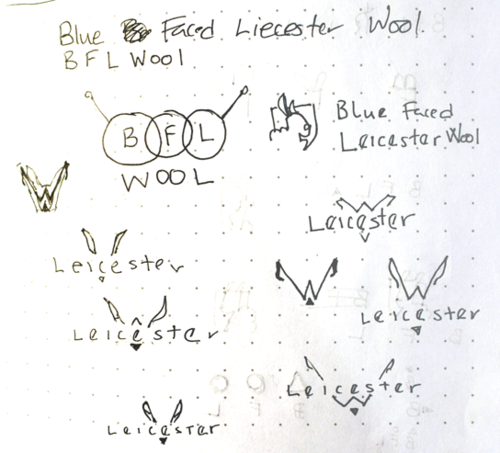 Blue Faced Liecester Wool
BFL Wool
B F L
WOOL
Blue Faced
Leicester Wool
W
Leicester
Leicester
W
Leicester
Leicester
Leicester
Leicester